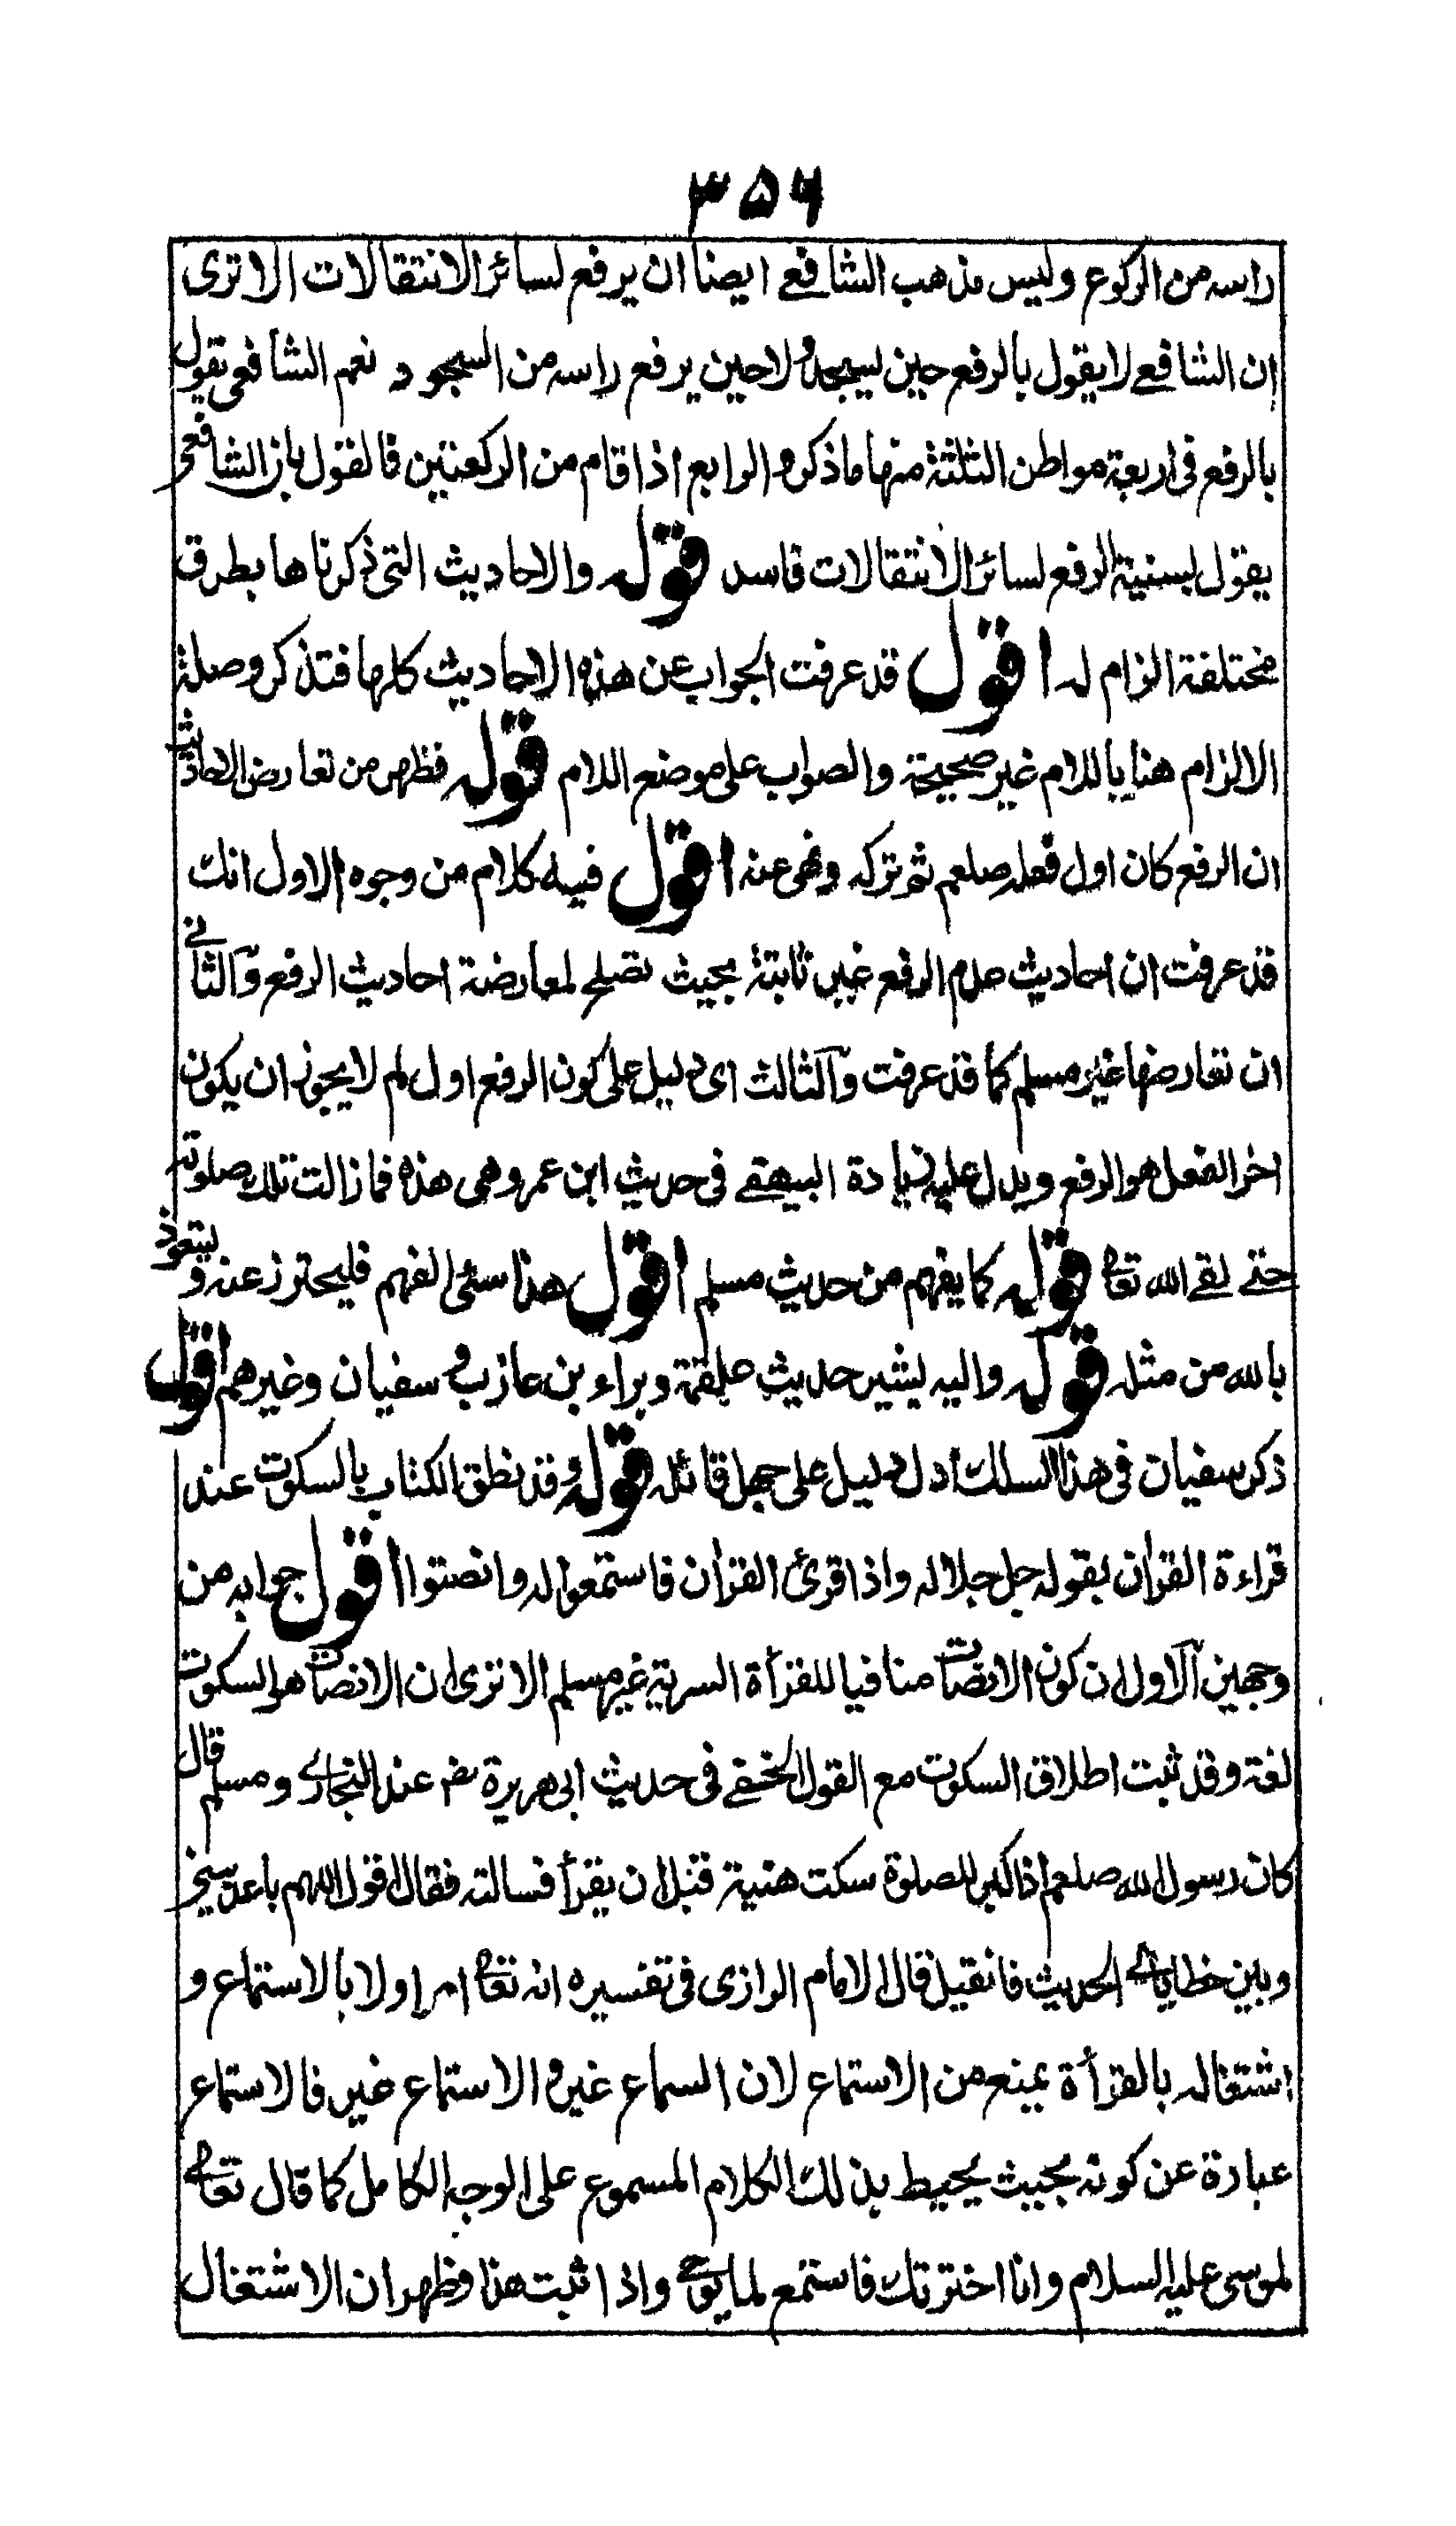 ٣٥٦
راسه من الركوع وليس مذهب الشافعے ايضا ان يرفع لسائر الانتقالات الا ترى
ان الشافعے لا يقول بالرفع حين يسجد ولا حين يرفع راسه من السجود نعم الشافعى يقول
بالرفع فى اربعة مواطن الثلثة منها ما ذكر والرابع اذا قام من الركعتين فالقول بان الشافعى
يقول بسنية الرفع لسائر الانتقالات فاسد قوله والاحاديث التى ذكرناها بطرق
مختلفة الزام له اقول قد عرفت الجواب عن هذه الاحاديث كلها فتذكر وصلة
الالزام هنا باللام غير صحيحة والصواب على موضع اللام قوله فظهر من تعارض الاحاديث
ان الرفع كان اول فعله صلعم ثم تركه ونهى عنه اقول فيه كلام من وجوه الاول انك
قد عرفت ان احاديث عدم الرفع غير ثابتة بحيث تصلح لمعارضة احاديث الرفع والثانے
ان تعارضها غير مسلم كما قد عرفت والثالث اى دليل على كون الرفع اول لم لا يجوز ان يكون
اخر الفعل هو الرفع ويدل عليه زيادة البيهقے فى حديث ابن عمر وهى هذه فما زالت تلك صلوته
حتے لقے الله تعالے قوله كما يفهم من حديث مسلم اقول هذا سئ الفهم فليحترز عنه و يتعوذ
بالله من مثله قوله واليه يشير حديث علقمة وبراء بن عازب و سفيان وغيرهم اقول
ذكر سفيان فى هذا السلك ادل دليل على جهل قائله قوله وقد نطق الكتاب بالسكوت عند
قراءة القران بقوله جل جلاله واذا قرئ القران فاستمعوا له وانصتوا اقول جوابه من
وجهين الاول ان كون الانصات منافيا للقرأة السرية غير مسلم الا ترى ان الانصات هو السكوت
لغة وقد ثبت اطلاق السكوت مع القول الخفے فى حديث ابى هريرة رض عند البخارے ومسلم قال
كان رسول الله صلعم اذا كبر للصلوة سكت هنية قبل ان يقرأ فسالته فقال اقول اللهم باعد بينى
وبين خطاياے الحديث فان قيل قال الامام الرازى فى تفسيره انه تعالے امر اولا بالاستماع و
اشتغاله بالقرأة يمنع من الاستماع لان السماع غير و الاستماع غير فالاستماع
عبارة عن كونه بحيث يحيط بذلك الكلام المسموع على الوجه الكامل كما قال تعالے
لموسى عليه السلام وانا اخترتك فاستمع لما يوحے واذا ثبت هذا وظهر ان الاشتغال